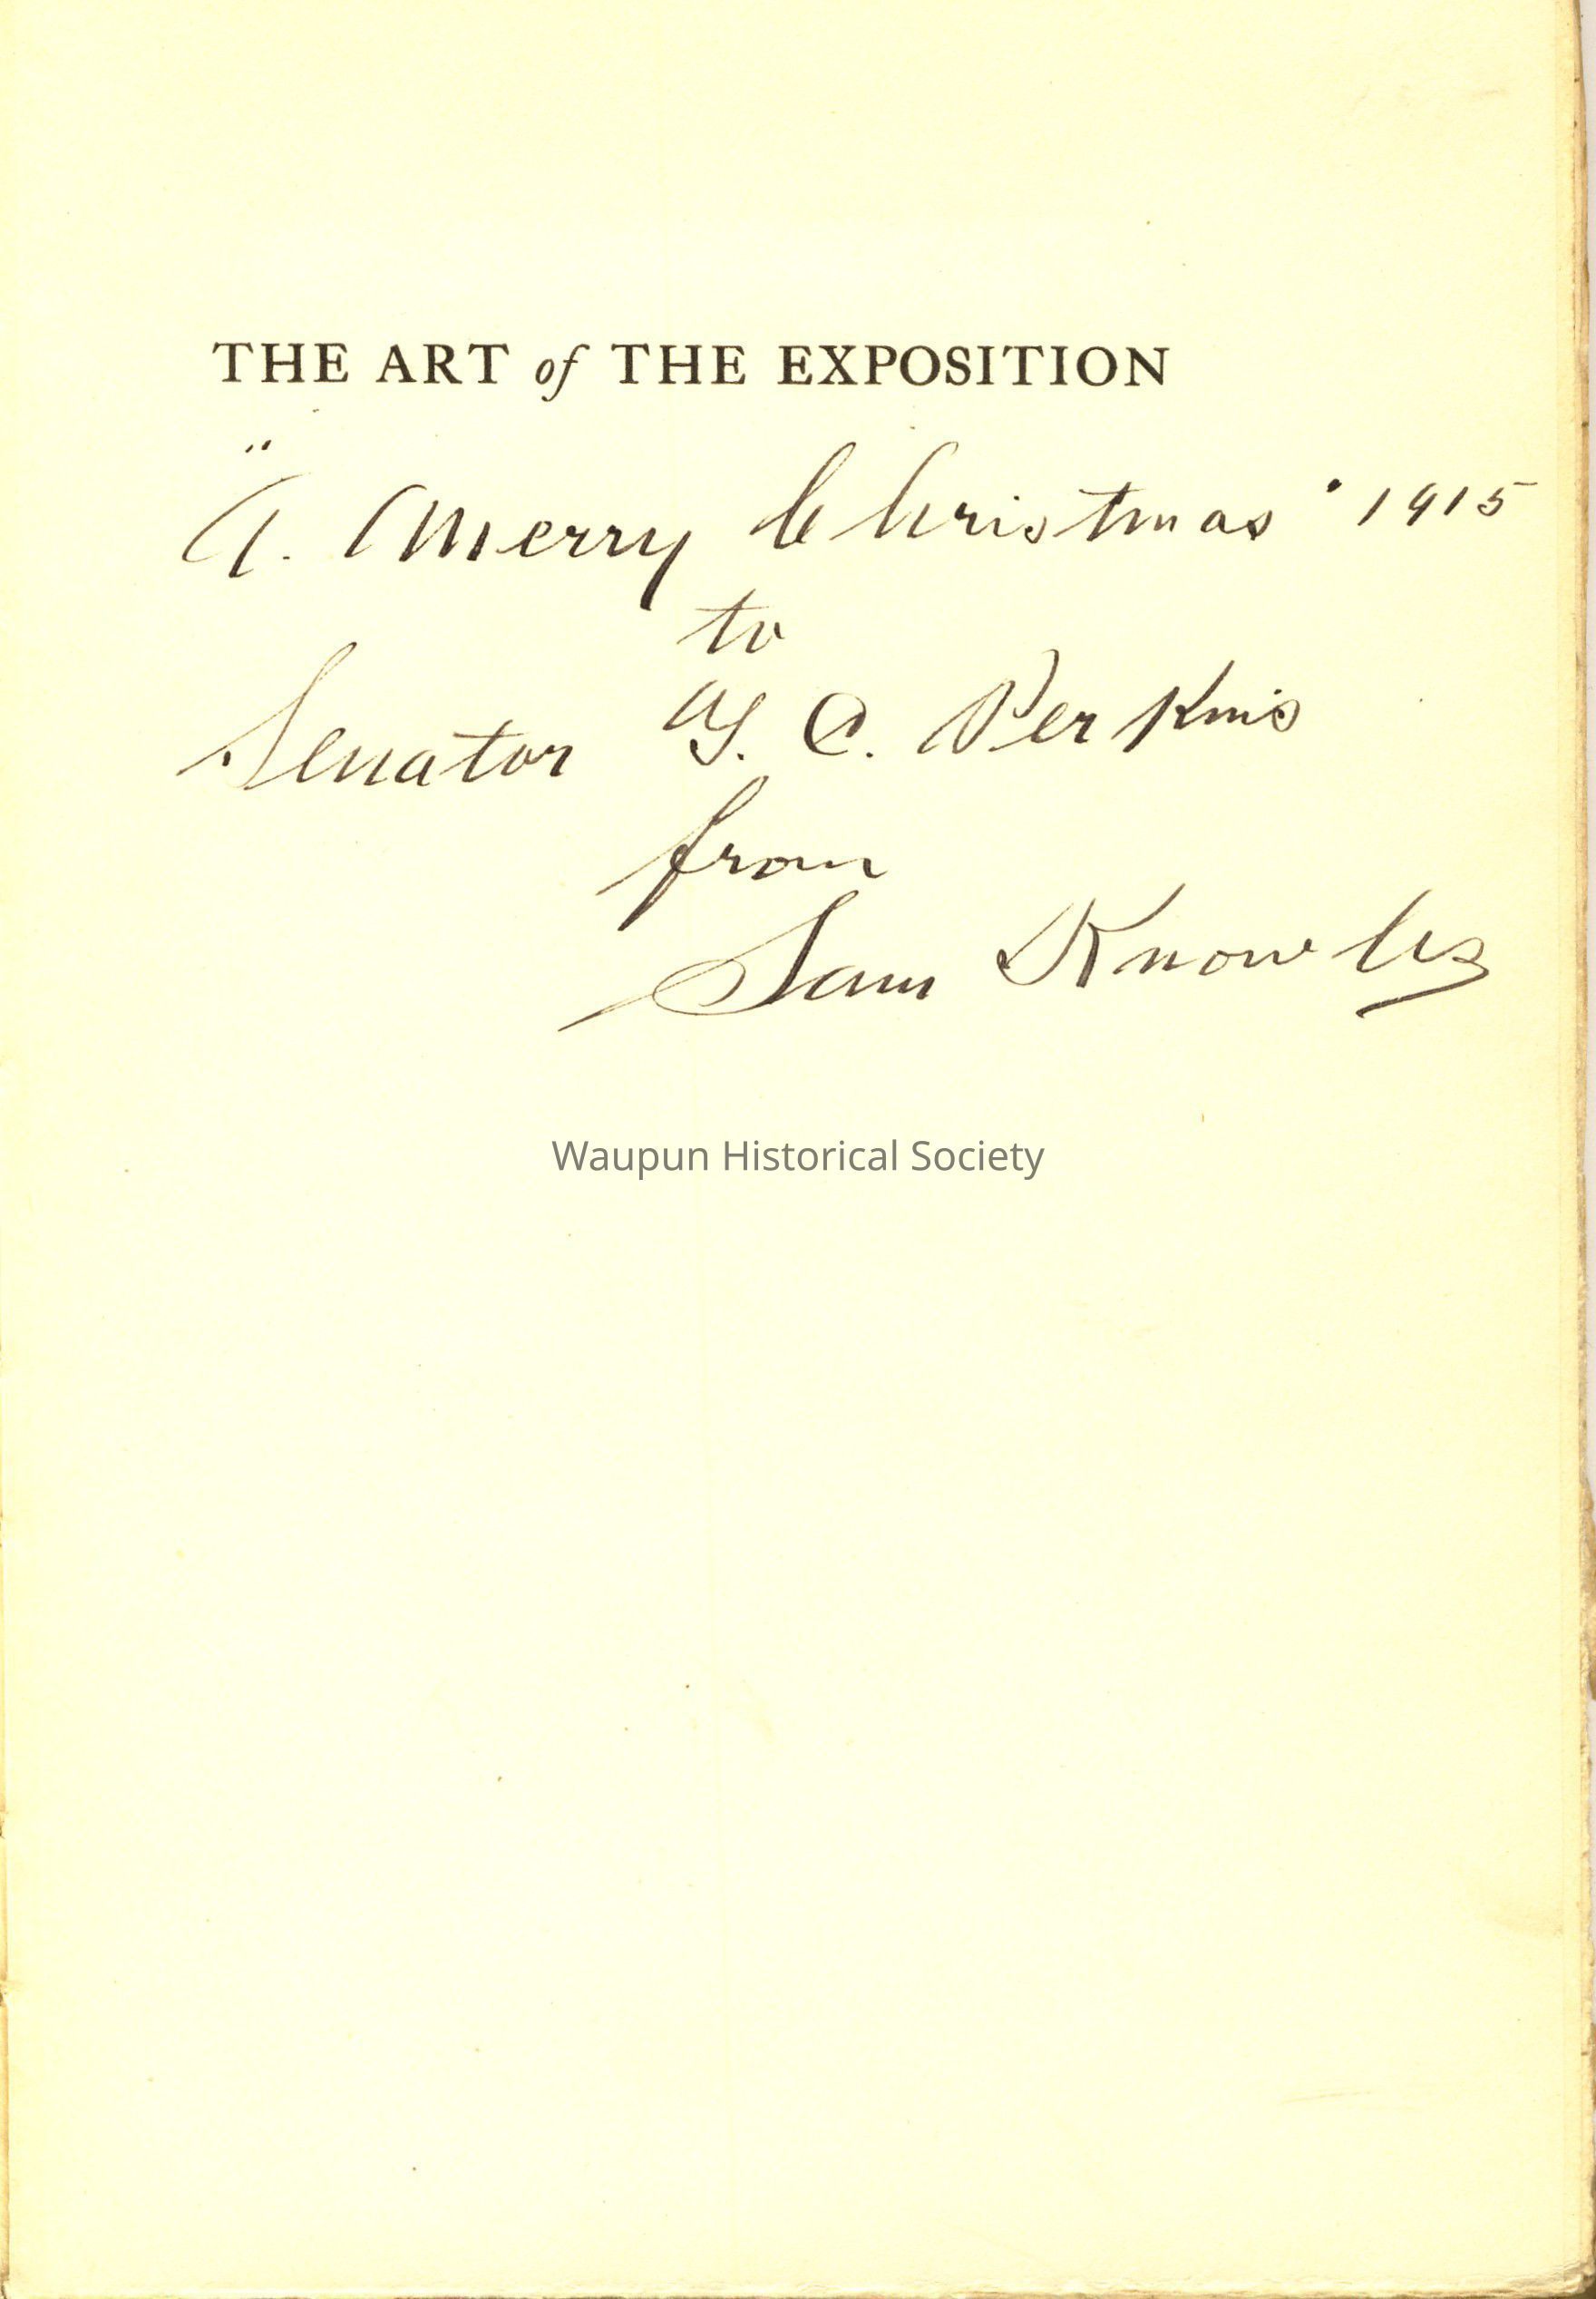 THE ART of THE EXPOSITION
"A. Merry Christmas" 1915
to
Senator G. C. Perkins
from
Sam Knowles
Waupun Historical Society